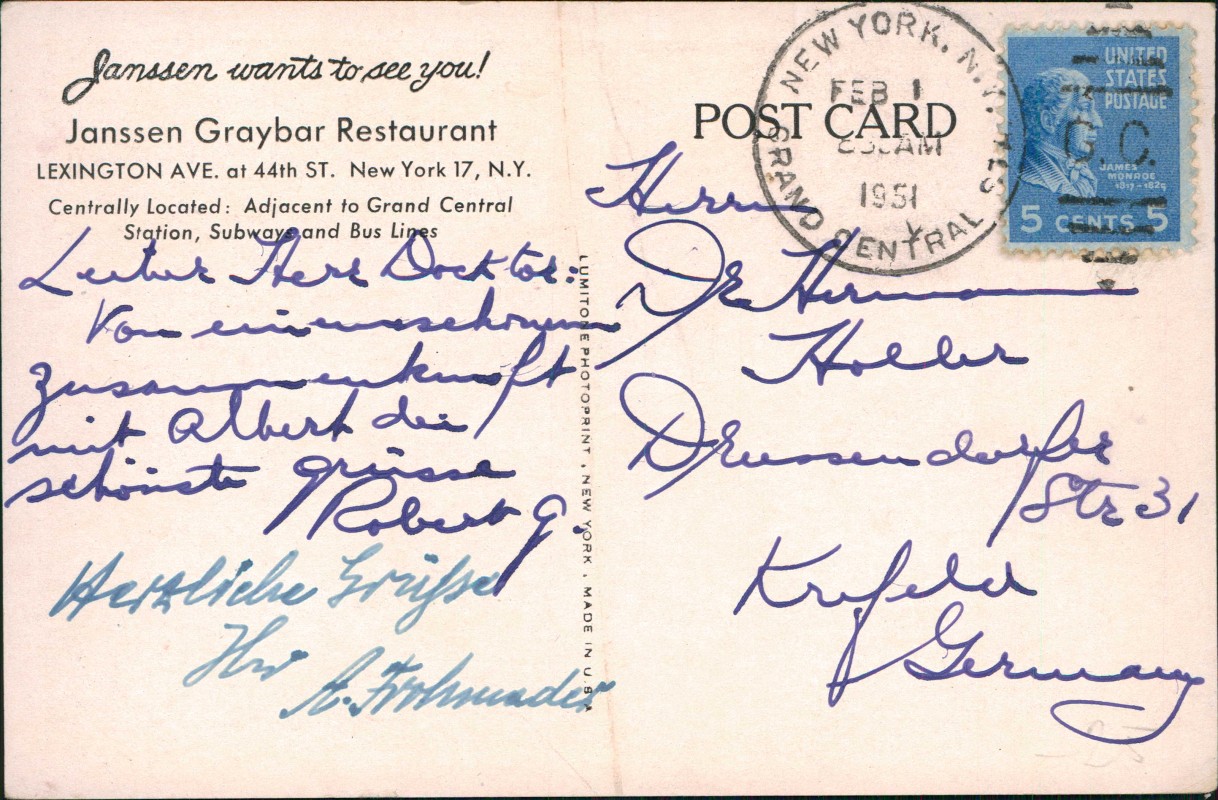 Janssen wants to see you!
Janssen Graybar Restaurant
LEXINGTON AVE. at 44th ST. New York 17, N.Y.
Centrally Located: Adjacent to Grand Central
Station, Subways and Bus Lines
Lieber Herr Docktor:
Von einem schönen
zusammenkunft
mit Albert die
schönste grüsse
Robert G.
Herzliche Grüße
Ihr
A. Frohmader
LUMITONE PHOTOPRINT, NEW YORK, MADE IN U.S.A
POST CARD
NEW YORK, N.Y.
GRAND CENTRAL
FEB 1
AM
1951
UNITED
STATES
POSTAGE
G.C.
JAMES
MONROE
1817-1825
5 CENTS 5
Herrn
Dr Hermann
Holler
Str 31
Krefeld
Germany